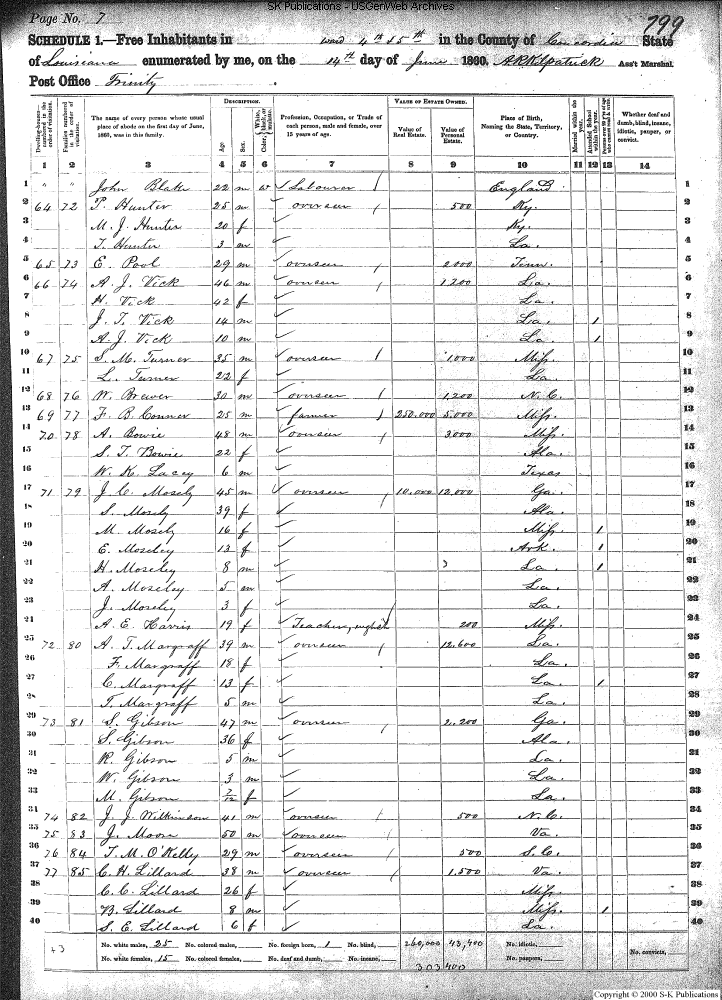 SK Publications - USGenWeb Archives
Page No. 7
799
SCHEDULE 1.—Free Inhabitants in ward 4th & 5th in the County of Concordia State
of Louisiana enumerated by me, on the 14th day of June 1860. A R Kilpatrick Ass't Marshal.
Post Office Trinity
Dwelling-houses—numbered in the order of visitation.
Families numbered in the order of visitation.
The name of every person whose usual place of abode on the first day of June, 1860, was in this family.
DESCRIPTION.
Age.
Sex.
Color, White, black, or mulatto.
Profession, Occupation, or Trade of each person, male and female, over 15 years of age.
VALUE OF ESTATE OWNED.
Value of Real Estate.
Value of Personal Estate.
Place of Birth, Naming the State, Territory, or Country.
Married within the year.
Attended School within the year.
Whether deaf and dumb, blind, insane, idiotic, pauper, or convict.
1 2 3 4 5 6 7 8 9 10 11 12 13 14
1 " " John Blake 22 m w Labourer / England 1
2 64 72 P. Hunter 25 m overseer / 500 Ky. 2
3 M. J. Hunter 20 f Ky. 3
4 T. Hunter 3 m La. 4
5 65 73 E. Pool 29 m overseer / 2,000 Tenn. 5
6 66 74 A. J. Vick 46 m overseer / 1,200 La. 6
7 H. Vick 42 f La. 7
8 J. T. Vick 14 m La. 1 8
9 A. J. Vick 10 m La. 1 9
10 67 75 S. M. Turner 35 m overseer / 1,000 Miss. 10
11 L. Turner 22 f La. 11
12 68 76 W. Brewer 30 m overseer / 1,200 N. C. 12
13 69 77 F. B. Conner 25 m farmer / 250,000 5,000 Miss. 13
14 70 78 A. Bowie 48 m overseer / 3000 Miss. 14
15 S. T. Bowie 22 f Ala. 15
16 W. K. Lacey 6 m Texas 16
17 71 79 J. C. Mosely 45 m overseer 10,000 12,000 Ga. 17
18 S. Mosely 39 f Ala. 18
19 M. Mosely 16 f Miss. 1 19
20 E. Moseley 13 f Ark. 1 20
21 H. Moseley 8 m La. 1 21
22 A. Moseley 5 m La. 22
23 J. Moseley 3 f La. 23
24 A. E. Harris 19 f Teacher, english 200 Miss. 24
25 72 80 A. T. Margraff 39 m overseer / 12,600 La. 25
26 F. Margraff 18 f La. 26
27 C. Margraff 13 f La. 1 27
28 T. Margraff 5 m La. 28
29 73 81 S. Gibson 47 m overseer / 2,200 Ga. 29
30 S. Gibson 36 f Ala. 30
31 R. Gibson 5 m La. 31
32 W. Gibson 3 m La. 32
33 M. Gibson 7/12 f La. 33
34 74 82 J. J. Wilkinson 41 m overseer / 500 N. C. 34
35 75 83 J. Moon 50 m overseer / Va. 35
36 76 84 T. M. O'Kelly 29 m overseer / 500 S. C. 36
37 77 85 C. H. Lillard 38 m overseer / 1,500 Va. 37
38 C. C. Lillard 26 f Miss. 38
39 B. Lillard 8 m Miss. 1 39
40 S. E. Lillard 6 f La. 40
No. white males, 25 No. colored males, No. foreign born, 1 No. blind, 260,000 43,400 No. idiotic,
No. white females, 15 No. colored females, No. deaf and dumb, No. insane, No. paupers, No. convicts,
303400
Copyright © 2000 S-K Publications